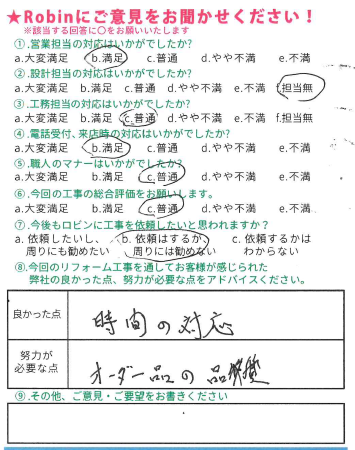 ★Robinにご意見をお聞かせください！
※該当する回答に〇をお願いいたします
①.営業担当の対応はいかがでしたか?
a.大変満足 b.満足 c.普通 d.やや不満 e.不満
②.設計担当の対応はいかがでしたか?
a.大変満足 b.満足 c.普通 d.やや不満 e.不満 f.担当無
③.工務担当の対応はいかがでしたか?
a.大変満足 b.満足 c.普通 d.やや不満 e.不満 f.担当無
④.電話受付、来店時の対応はいかがでしたか?
a.大変満足 b.満足 c.普通 d.やや不満 e.不満
⑤.職人のマナーはいかがでしたか?
a.大変満足 b.満足 c.普通 d.やや不満 e.不満
⑥.今回の工事の総合評価をお願いします。
a.大変満足 b.満足 c.普通 d.やや不満 e.不満
⑦.今後もロビンに工事を依頼したいと思われますか？
a. 依頼したいし、 b. 依頼はするが、 c. 依頼するかは
周りにも勧めたい 周りには勧めない わからない
⑧.今回のリフォーム工事を通してお客様が感じられた
弊社の良かった点、努力が必要な点をアドバイスください。
良かった点 時間の対応
努力が
必要な点 オーダー品の品質
⑨.その他、ご意見・ご要望をお書きください